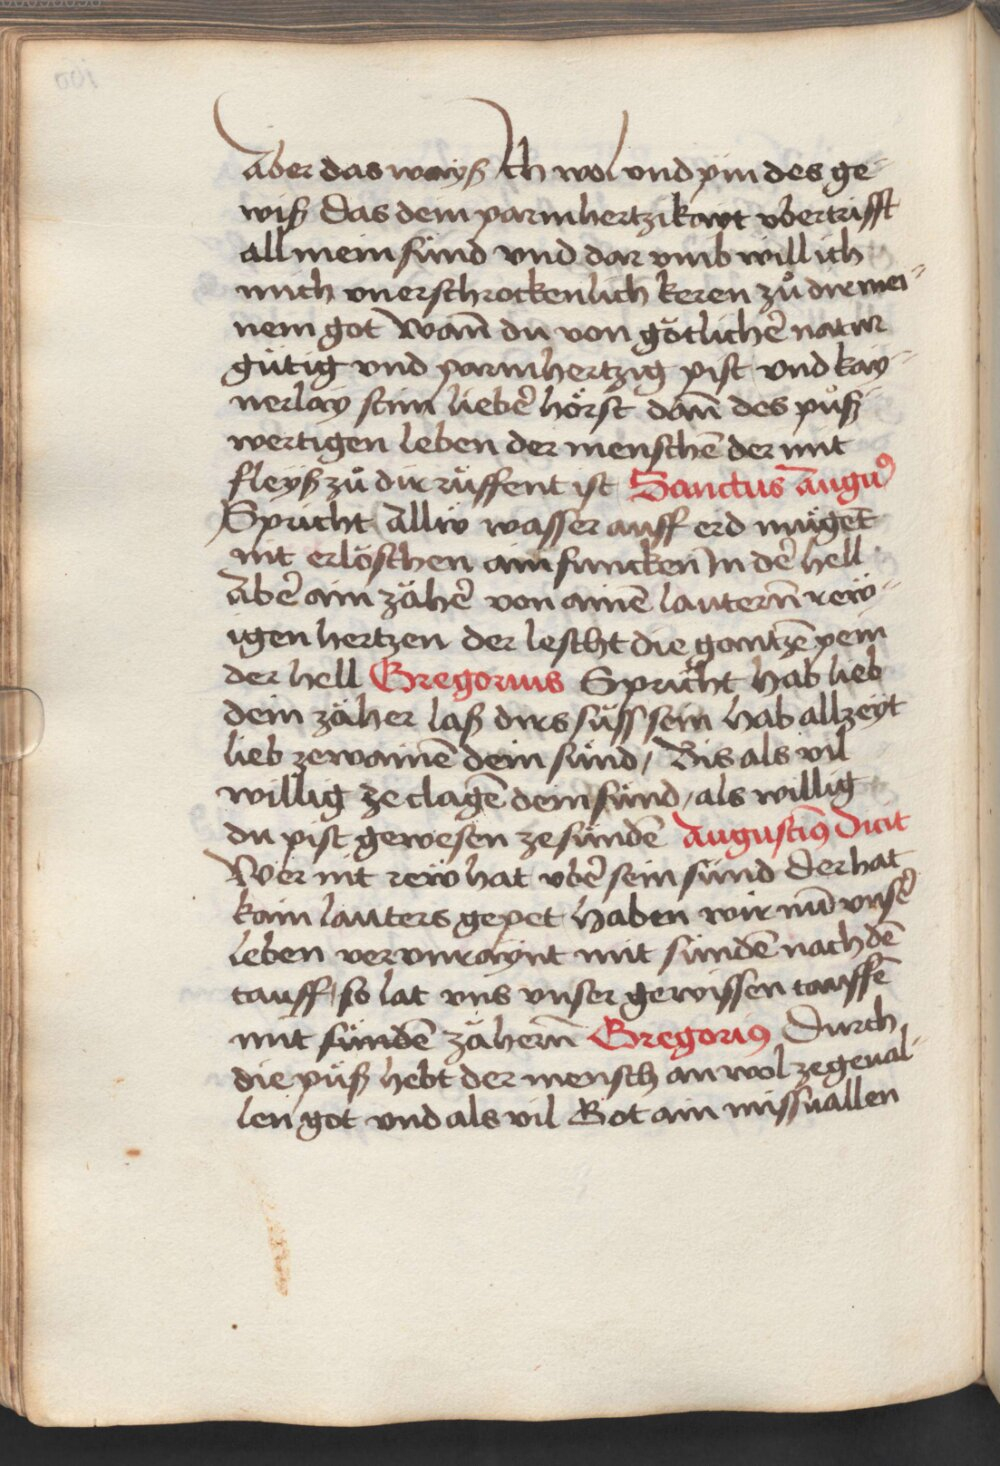 Aber das wayß Ich wol vnd pin des ge¬
wiß das dein parmhertzikayt vbertrifft
all mein sünd vnd dar vmb will ich
mich vnerschrockenlich keren zů dir mei¬
nem got Wañ du von götlicher̄ natur
gütig vnd parmhertzig pist vnd kay¬
nerlay stim lieber̄ hörst dañ des půß¬
wertigen leben der menschē der mit
fleyß zů dir rüffent ist Sanctus Augu⁹
Spricht Alliv wasser auff erd mügēt
nit erlöschen ain funcken In der̄ hell
Aber̄ ain zäher̄ von ainē lautern̄ rew¬
igen hertzen der lescht die gantzē pein
der hell Gregorius Spricht hab lieb
dein zäher laß dirs süss sein hab allzeyt
lieb zewainē dein sünd / Bis als vil
willig ze clagē dein sünd / als willig
du pist gewesen ze sünden̄ Augustin⁹ dicit
Wer nit rew hat vber̄ sein sünd der hat
kain lauters gepet Haben wir nū vnser̄
leben vervnraynt mit sünden̄ nach dē
tauff / so lat vns vnser gewissen tauffē
mit sünden̄ zähern̄ Gregori⁹ Durch
die půß hebt der mensch an wol zegeual¬
len got vnd als vil Got ain missuallen